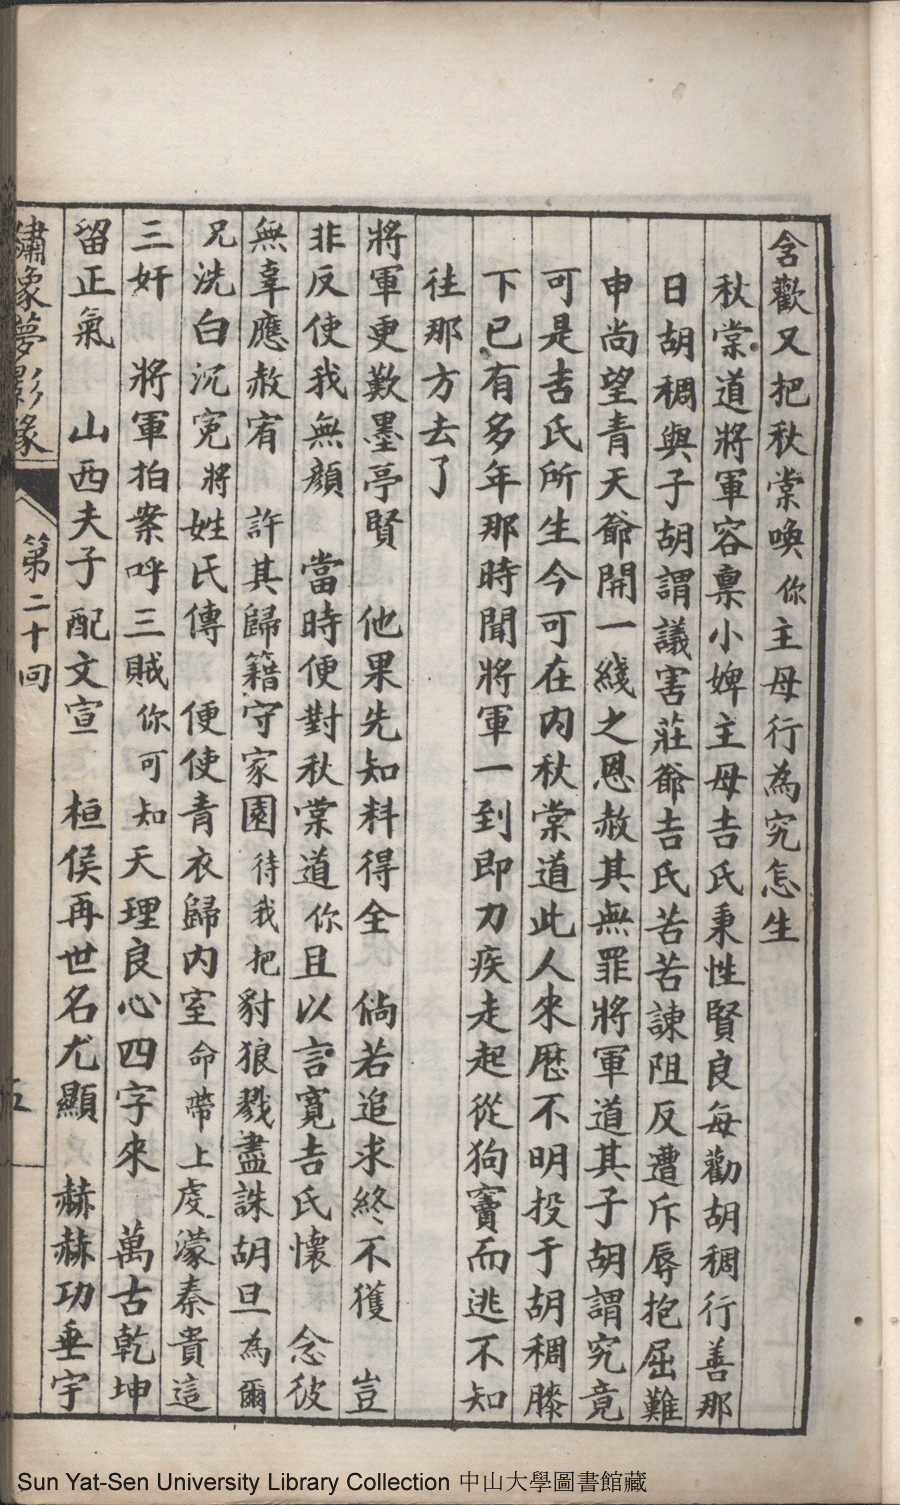 含歡又把秋棠喚你主母行為究怎生
秋棠道將軍容稟小婢主母吉氏秉性賢良每勸胡稠行善那
日胡稠與子胡謂議害莊爺吉氏苦苦諫阻反遭斥辱抱屈難
申尚望青天爺開一綫之恩赦其無罪將軍道其子胡謂究竟
可是吉氏所生今可在內秋棠道此人來歷不明投于胡稠膝
下已有多年那時聞將軍一到即刀疾走起從狗竇而逃不知
往那方去了
將軍更歎墨亭賢　他果先知料得全　倘若追求終不獲　豈
非反使我無顏　當時便對秋棠道你且以言寬吉氏懷　念彼
無辜應赦宥　許其歸籍守家園待我把豺狼戮盡誅胡旦為爾
兄洗白沉冤將姓氏傳　便使青衣歸內室命帶上虔濛秦貴這
三奸　將軍拍案呼三賊你可知天理良心四字來　萬古乾坤
留正氣　山西夫子配文宣　桓侯再世名尤顯　赫赫功垂宇
繡像夢影緣
第二十回
五
Sun Yat-Sen University Library Collection 中山大學圖書館藏